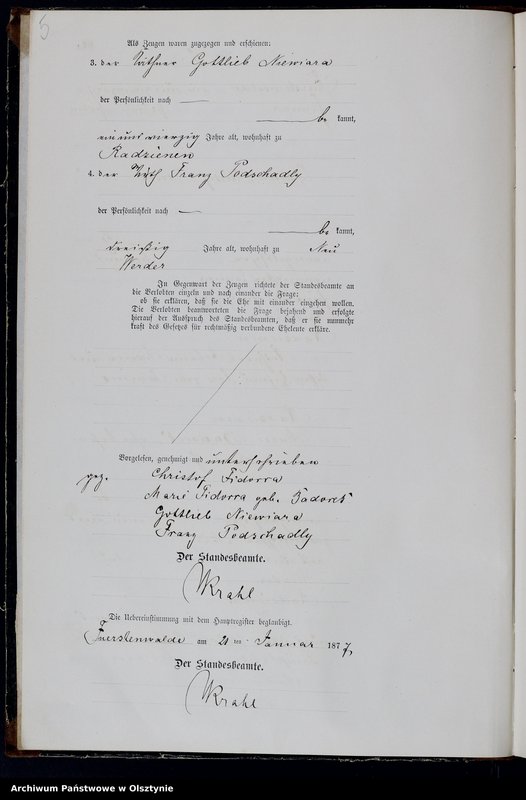 5
Als Zeugen waren zugezogen und erschienen:
3. der Käthner Gottlieb Niewiara
der Persönlichkeit nach
be kannt,
einundvierzig Jahre alt, wohnhaft zu
Radzienen
4. der Wirth Franz Podschadly
der Persönlichkeit nach
be kannt,
dreißig Jahre alt, wohnhaft zu Neu
Werder
In Gegenwart der Zeugen richtete der Standesbeamte an
die Verlobten einzeln und nach einander die Frage:
ob sie erklären, daß sie die Ehe mit einander eingehen wollen.
Die Verlobten beantworteten die Frage bejahend und erfolgte
hierauf der Ausspruch des Standesbeamten, daß er sie nunmehr
kraft des Gesetzes für rechtmäßig verbundene Eheleute erkläre.
Vorgelesen, genehmigt und unterschrieben
gez. Christof Fidorra
Marie Fidorra geb.
Gottlieb Niewiara
Franz Podschadly
Der Standesbeamte.
Krahl
Die Uebereinstimmung mit dem Hauptregister beglaubigt.
Fuerstenwalde am 21 ten Januar 1877,
Der Standesbeamte.
Krahl
Archiwum Państwowe w Olsztynie